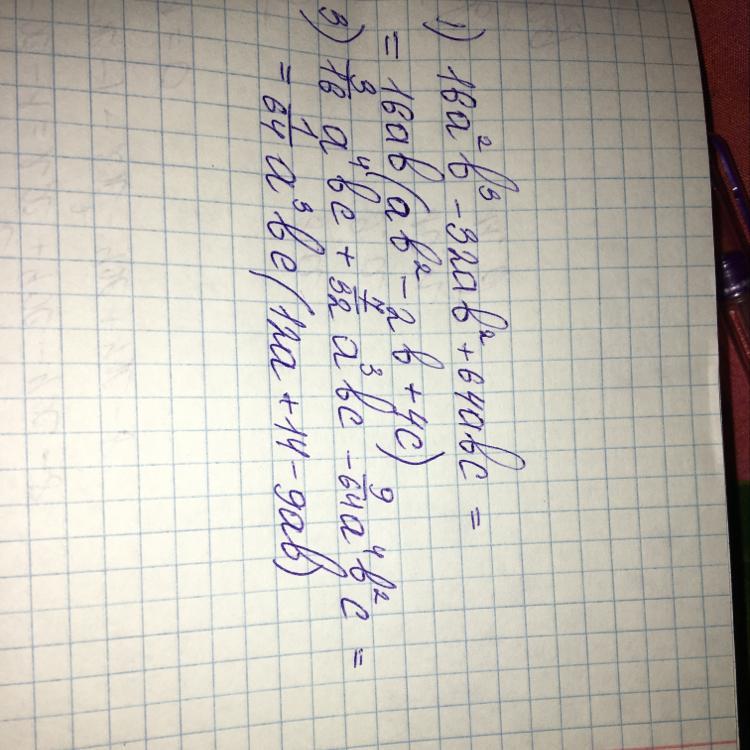 1) 16a²b³ - 32ab² + 64abc =
= 16ab(ab² - 2b + 4c)
3) 3/16 a⁴bc + 7/32 a³bc - 9/64 a⁴b²c =
= 1/64 a³bc(12a + 14 - 9ab)